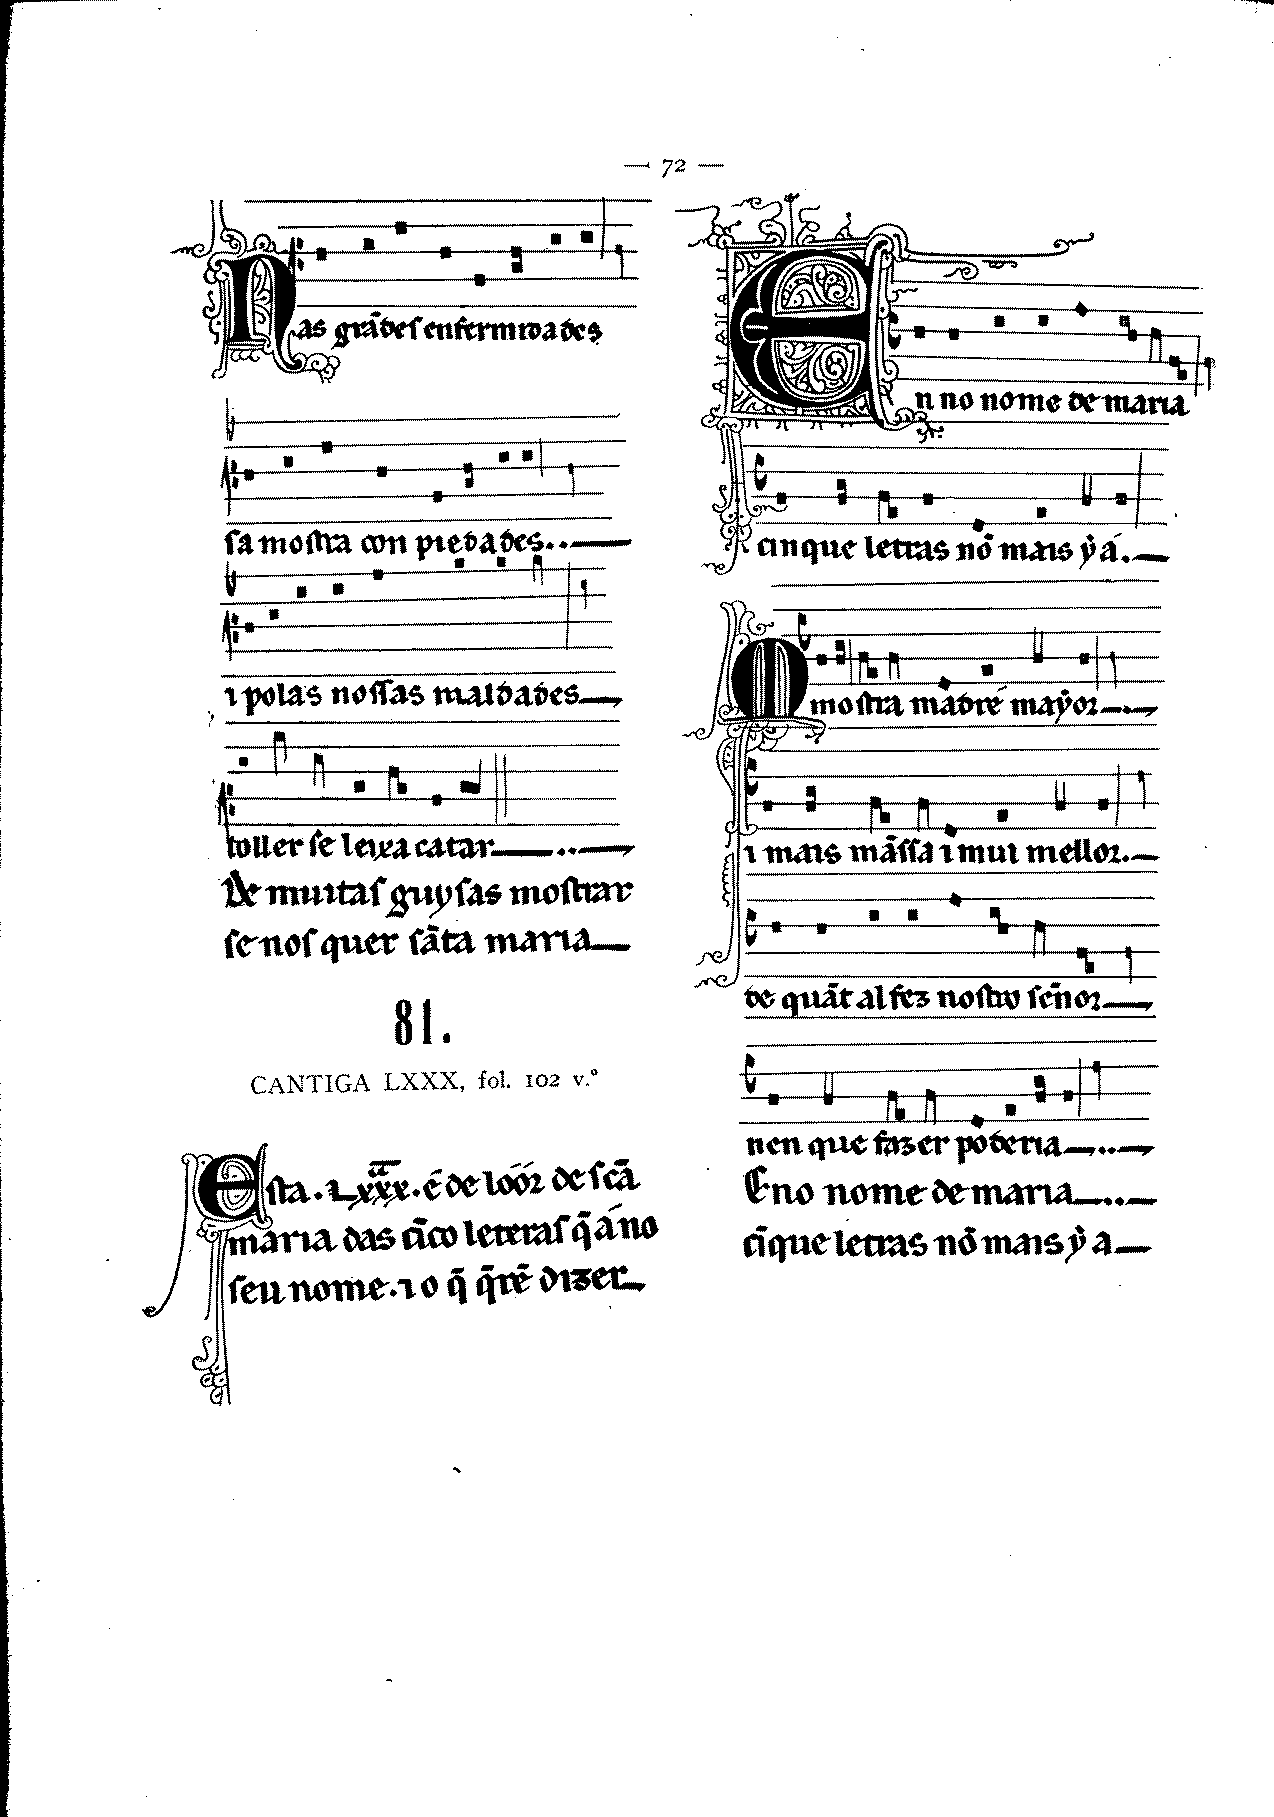 — 72 —
Nas grãdeſ enfermidades
ſa moſtra con piedades..
⁊ polas noſſas maldades
toller ſe leixa catar
De muitaſ guyſas moſtrar
ſe noſ quer ſãta maria
81.
CANTIGA LXXX, fol. 102 v.º
Eſta . LXXX . é de loór de ſcã
maria das cĩco leteraſ q̃ á no
ſeu nome. ⁊ o q̃ q̃rẽ dizer
En no nome de maria
cinque letras nõ mais ẏ á.
M moſtra madre mayor
⁊ mais mãſſa ⁊ mui mellor.
de quãt al fez noſtro ſen̄or
nen que fazer poderia
Eno nome de maria
cĩque letras nõ mais ẏ a